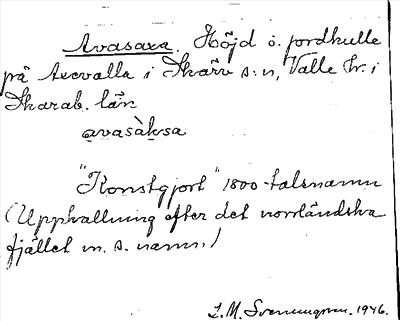 Avasaxa. Höjd o. jordkulle
på Axevalla i Skärv s:n, Valle hr. i
Skarab. län
avasàksa
"Konstgjort" 1800-talsnamn
(Uppkallning efter det norrländska
fjället m. s. namn.)
L. M. Svenungsson. 1946.